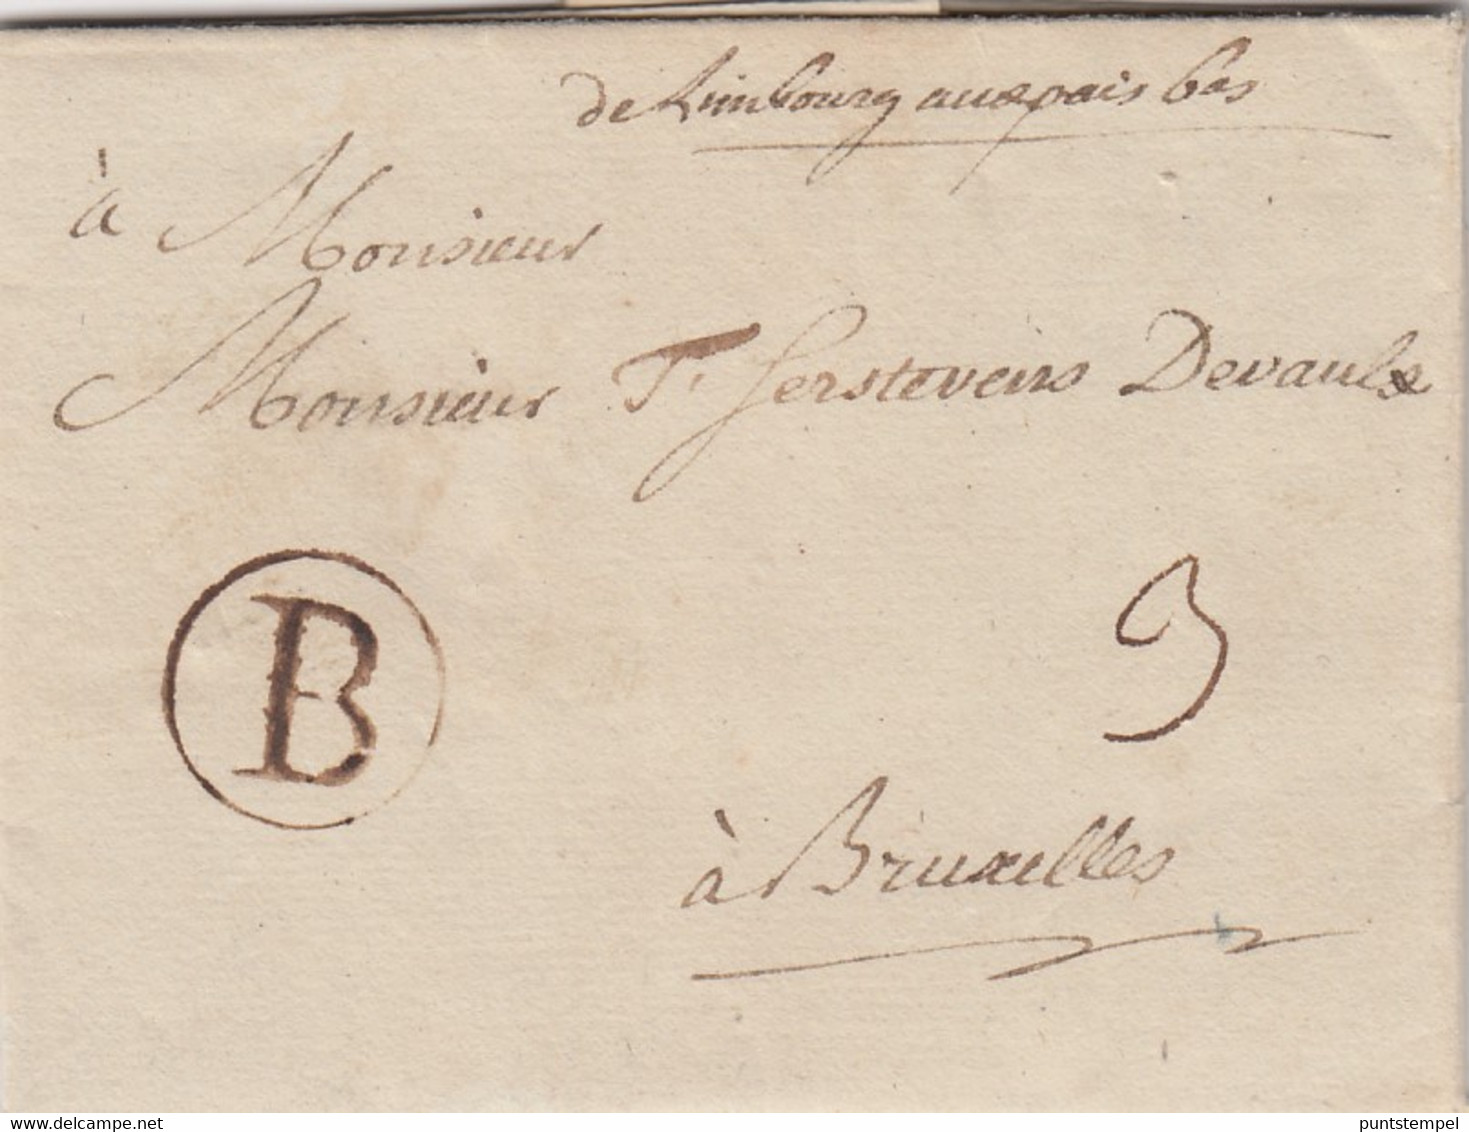 de Limbourg aux pais bas
à Monsieur
Monsieur T. Gerstevens Devaulx
B
3
à Bruxelles
puntstempel